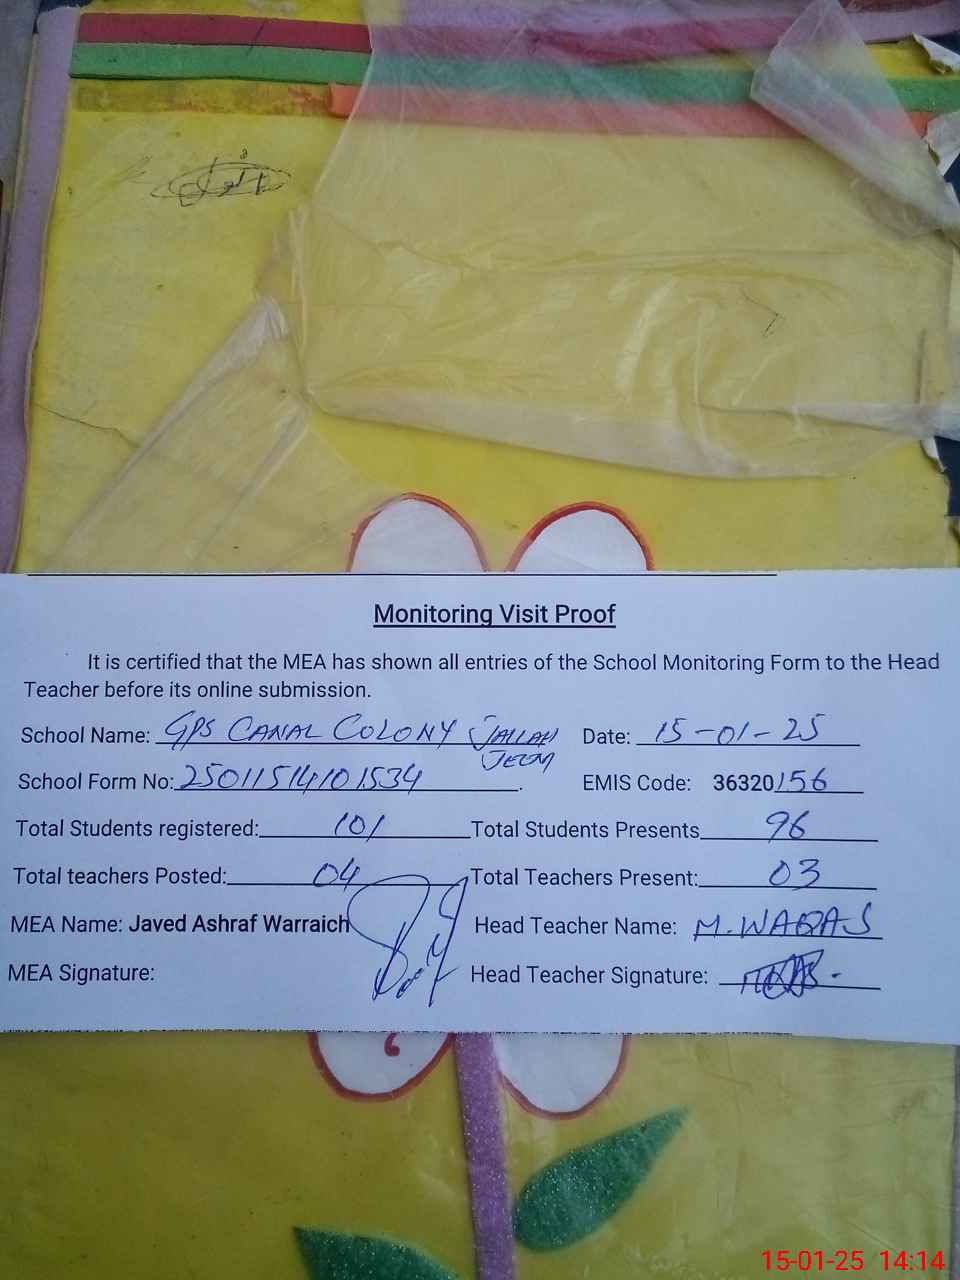 Monitoring Visit Proof
It is certified that the MEA has shown all entries of the School Monitoring Form to the Head
Teacher before its online submission.
School Name: GPS CANAL COLONY JALLAH JEEM Date: 15-01-25
School Form No: 25011514101534. EMIS Code: 36320156
Total Students registered: 101 Total Students Presents 96
Total teachers Posted: 04 Total Teachers Present: 03
MEA Name: Javed Ashraf Warraich Head Teacher Name: M. WAQAS
MEA Signature: Head Teacher Signature:
15-01-25 14:14